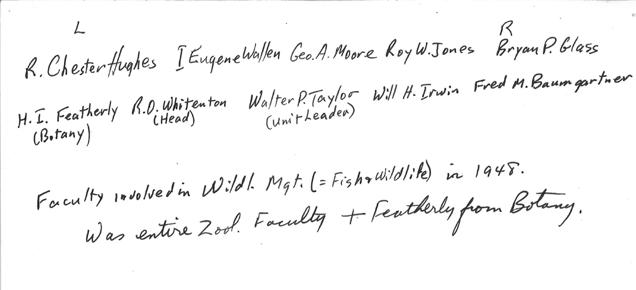 L R
R. Chester Hughes I Eugene Wallen Geo. A. Moore Roy W. Jones Bryan P. Glass
H. I. Featherly R.O. Whitenton Walter P. Taylor Will H. Irwin Fred M. Baumgartner
(Botany) (Head) (Unit Leader)
Faculty involved in Wildl. Mgt. (= Fish & Wildlife) in 1948.
Was entire Zool. Faculty + Featherly from Botany.